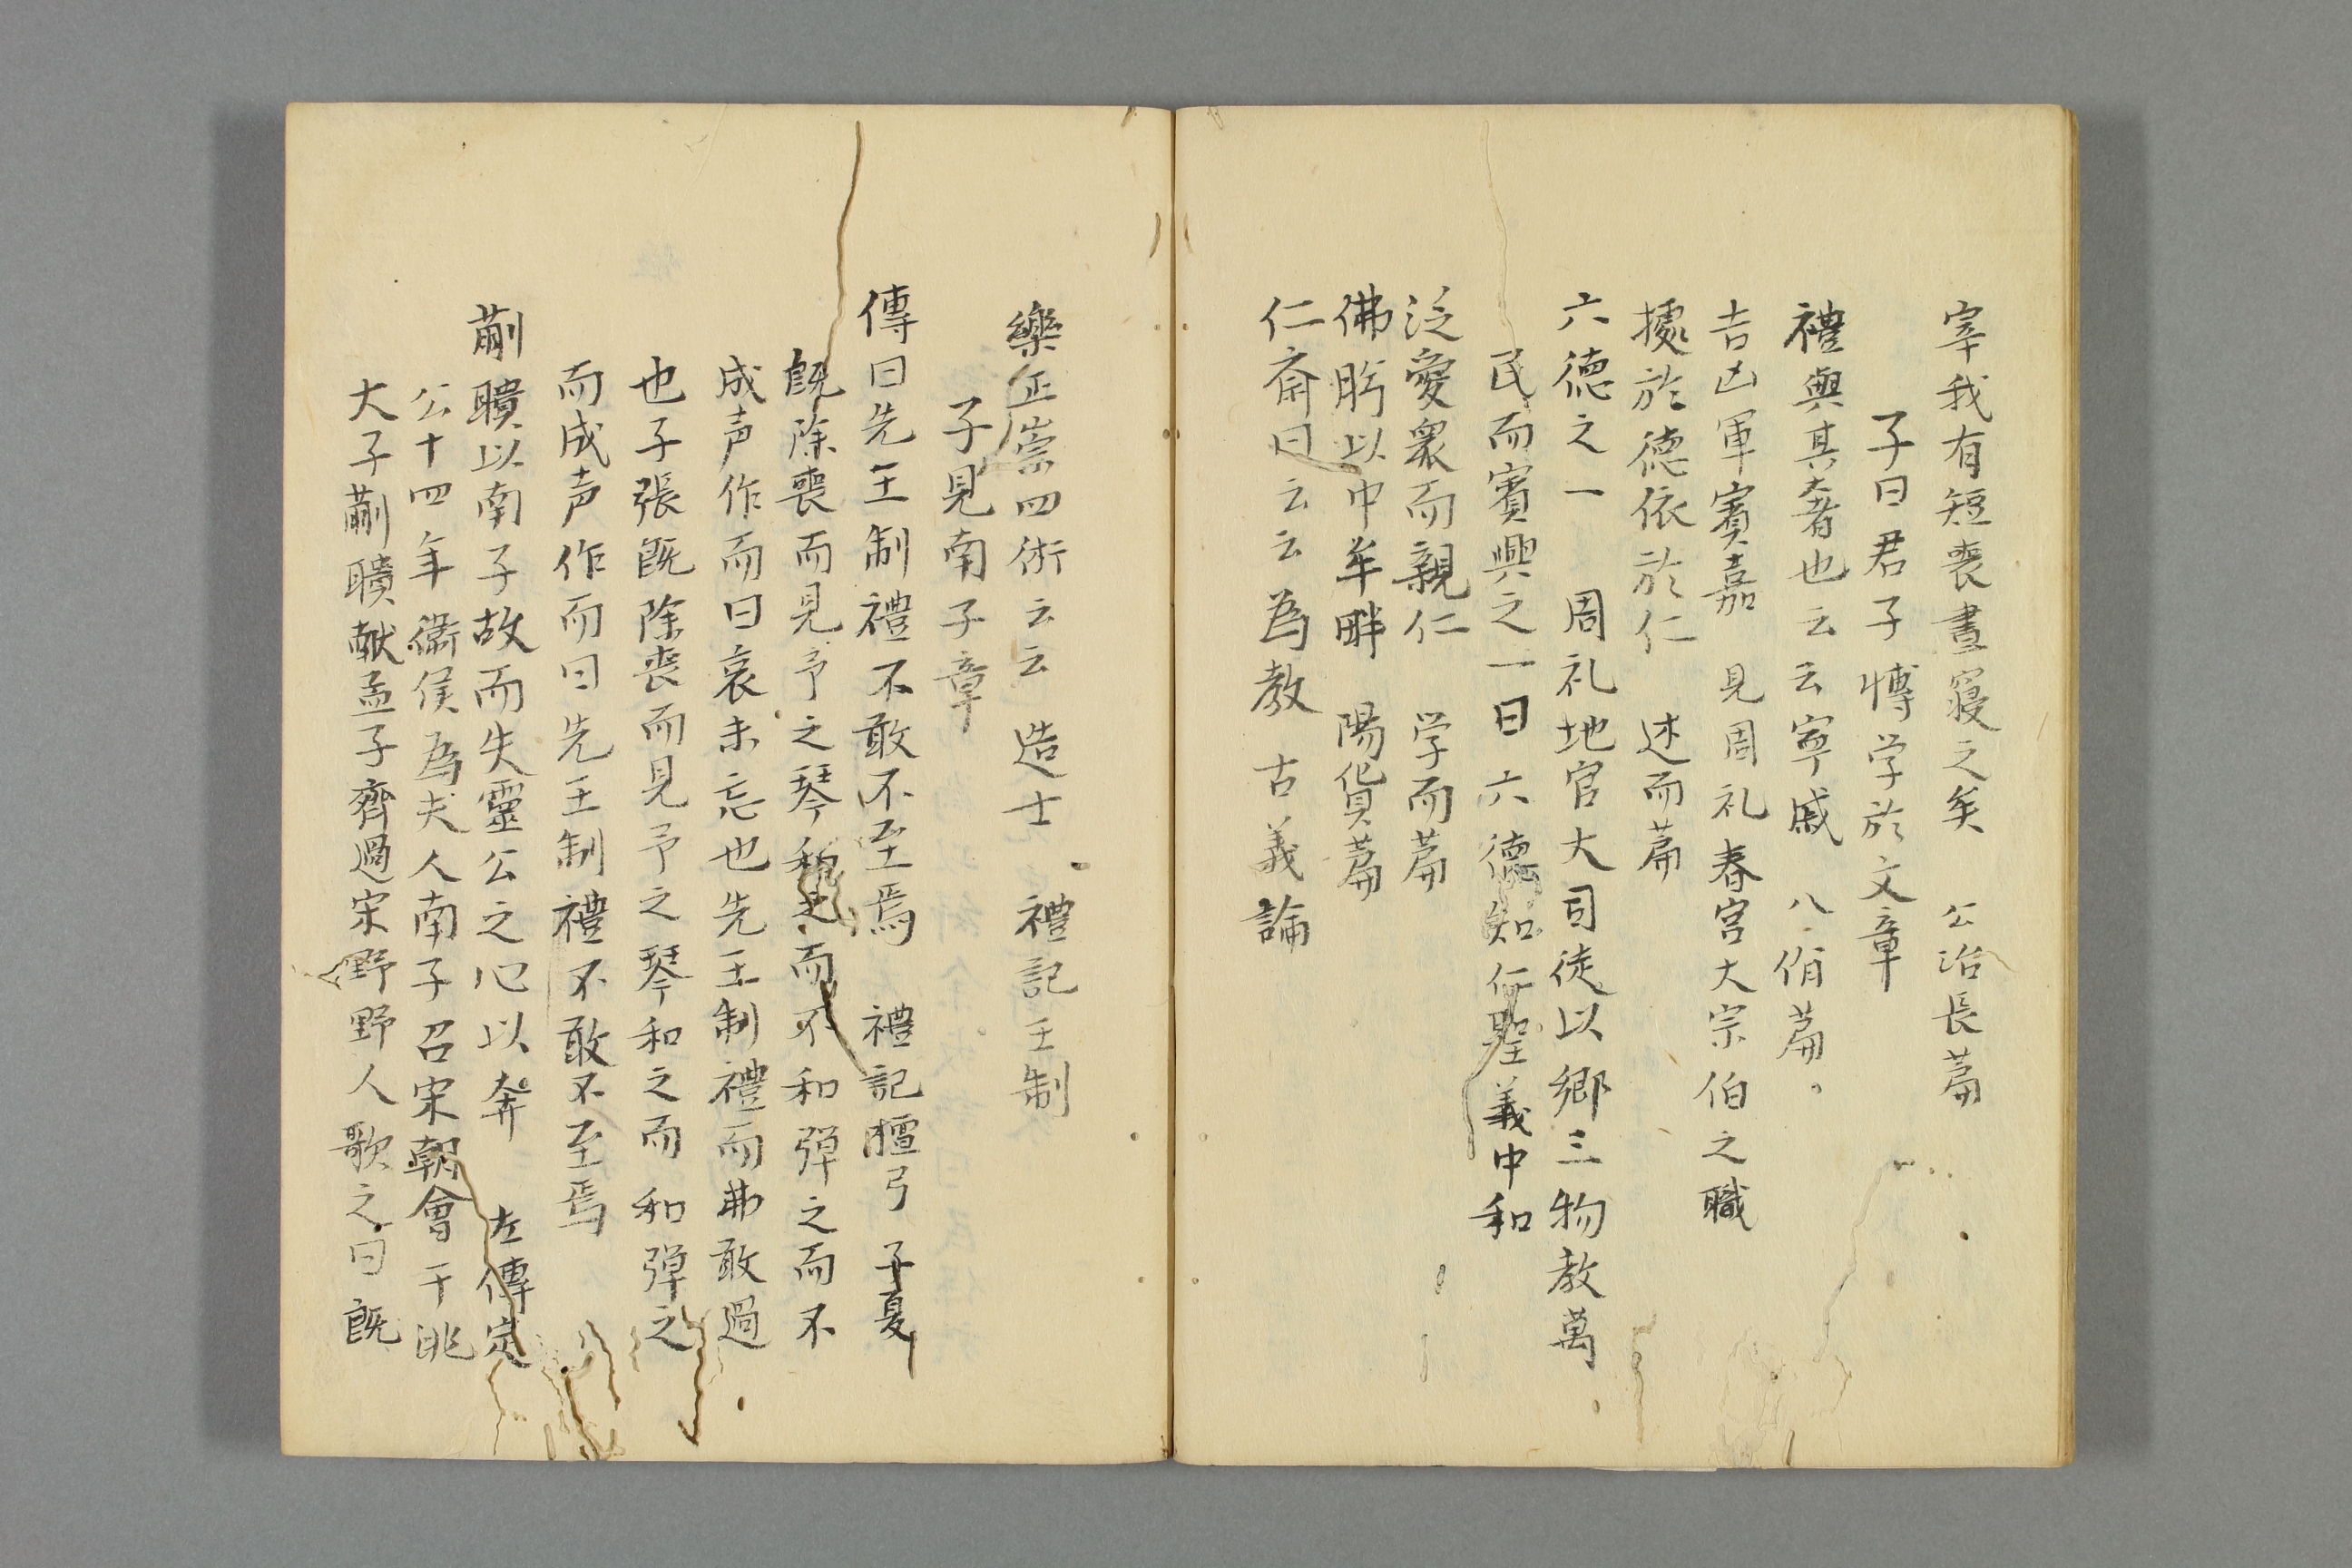 宰我有短喪晝寢之失　公冶長篇
子曰君子博学於文章
禮與其奢也云云寧戚　八佾篇。
吉凶軍賓嘉　見周礼春官大宗伯之職
據於德依於仁　述而篇
六德之一　周礼地官大司徒以鄉三物教萬
民而賓興之一曰六德知仁聖義中和
泛愛衆而親仁　学而篇
佛肸以中牟畔　陽貨篇
仁斎曰云云為教　古義論
樂正崇四術云云　造士　禮記王制
子見南子章
傳曰先王制禮不敢不至焉　禮記檀弓　子夏
既除喪而見予之琴和之而不和彈之而不
成声作而曰哀未忘也先王制禮而弗敢過
也子張既除喪而見予之琴和之而和彈之
而成声作而曰先王制禮不敢不至焉
蒯聵以南子故而失靈公之心以奔　左傳定
公十四年衞侯為夫人南子召宋朝會于洮
大子蒯聵献盂子齊過宋野野人歌之曰既